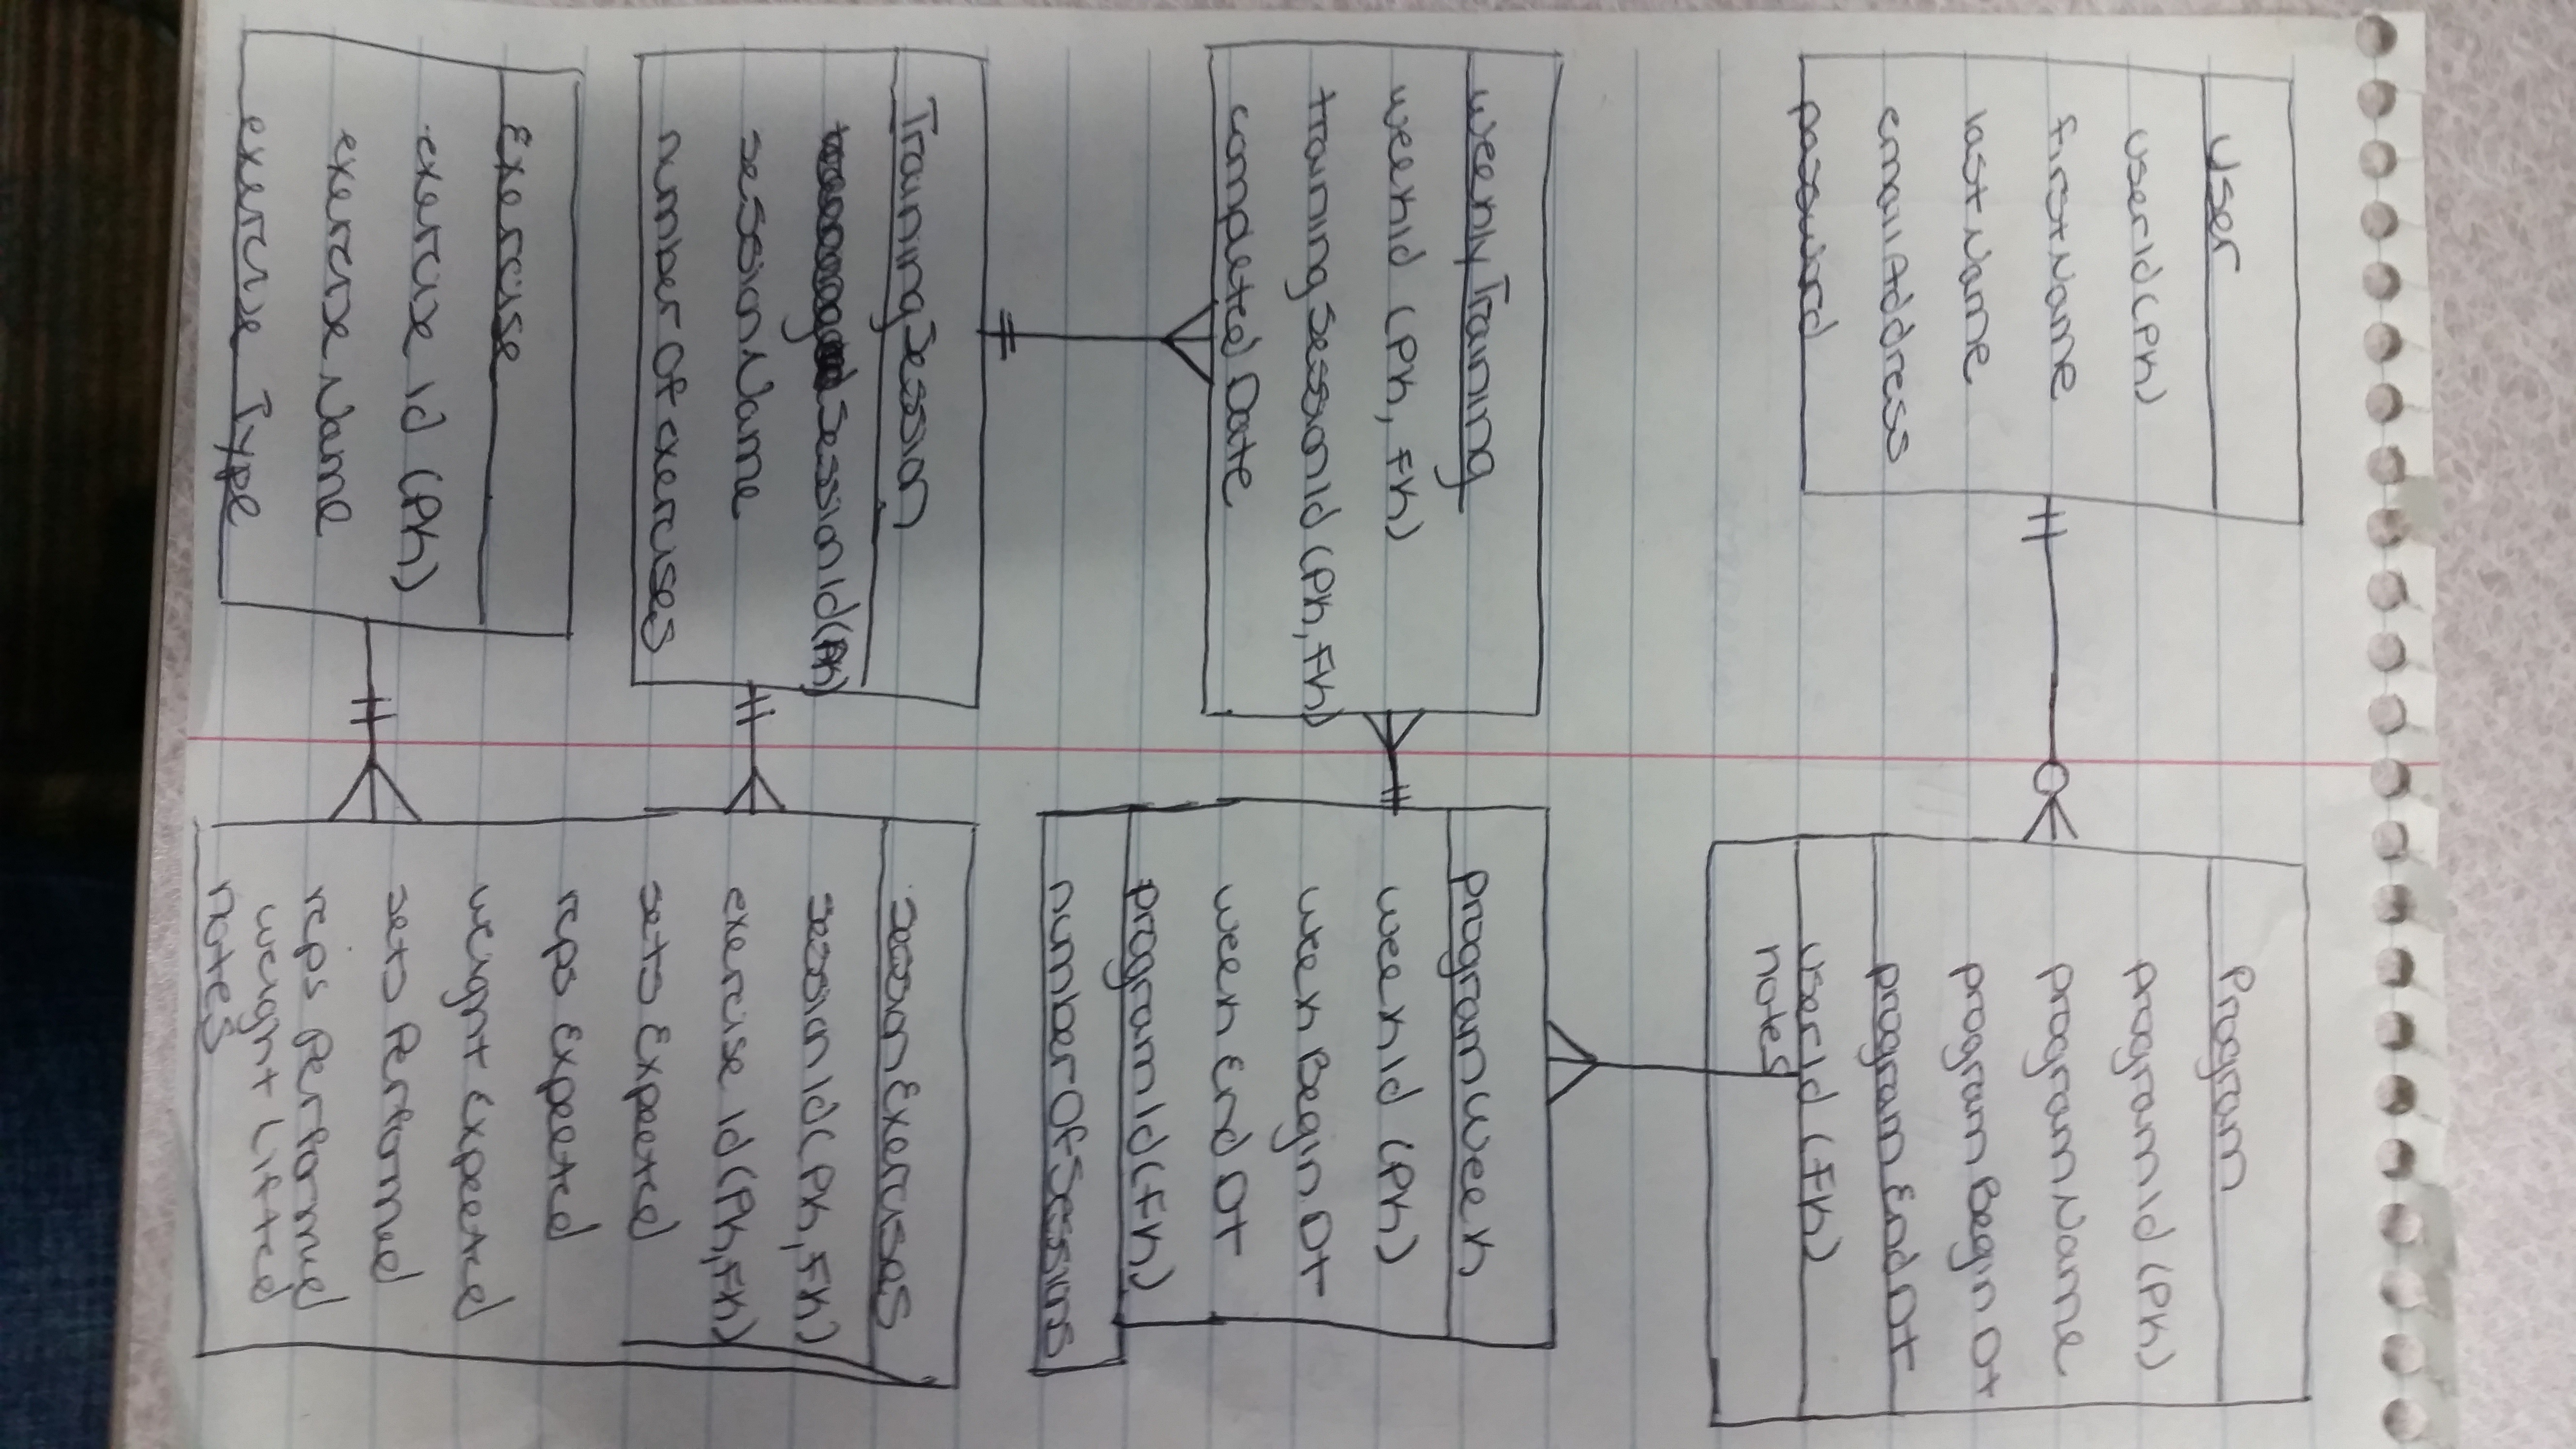 User
userId (PK)
firstName
lastName
emailAddress
password
Program
programId (PK)
programName
programBeginDt
programEndDt
userId (FK)
notes
WeeklyTraining
weekId (PK, FK)
trainingSessionId (PK, FK)
completedDate
ProgramWeek
weekId (PK)
weekBeginDt
weekEndDt
programId (FK)
numberOfSessions
TrainingSession
SessionId (PK)
sessionName
numberOfexercises
SessionExercises
sessionId (PK, FK)
exerciseId (PK, FK)
setsExpected
repsExpected
weightExpected
setsPerformed
repsPerformed
weightLifted
notes
Exercise
exerciseId (PK)
exerciseName
exerciseType